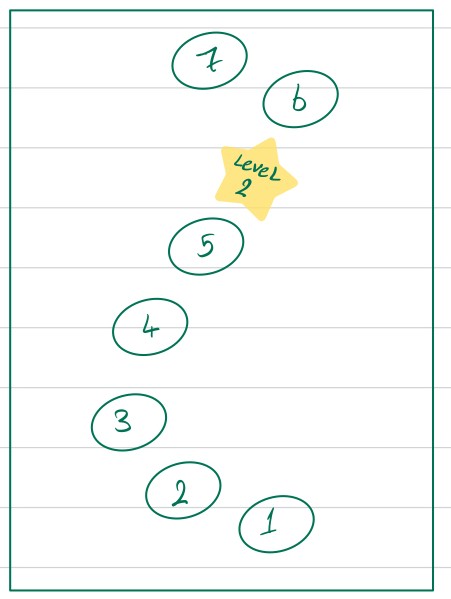 7
6
Level
2
5
4
3
2
1